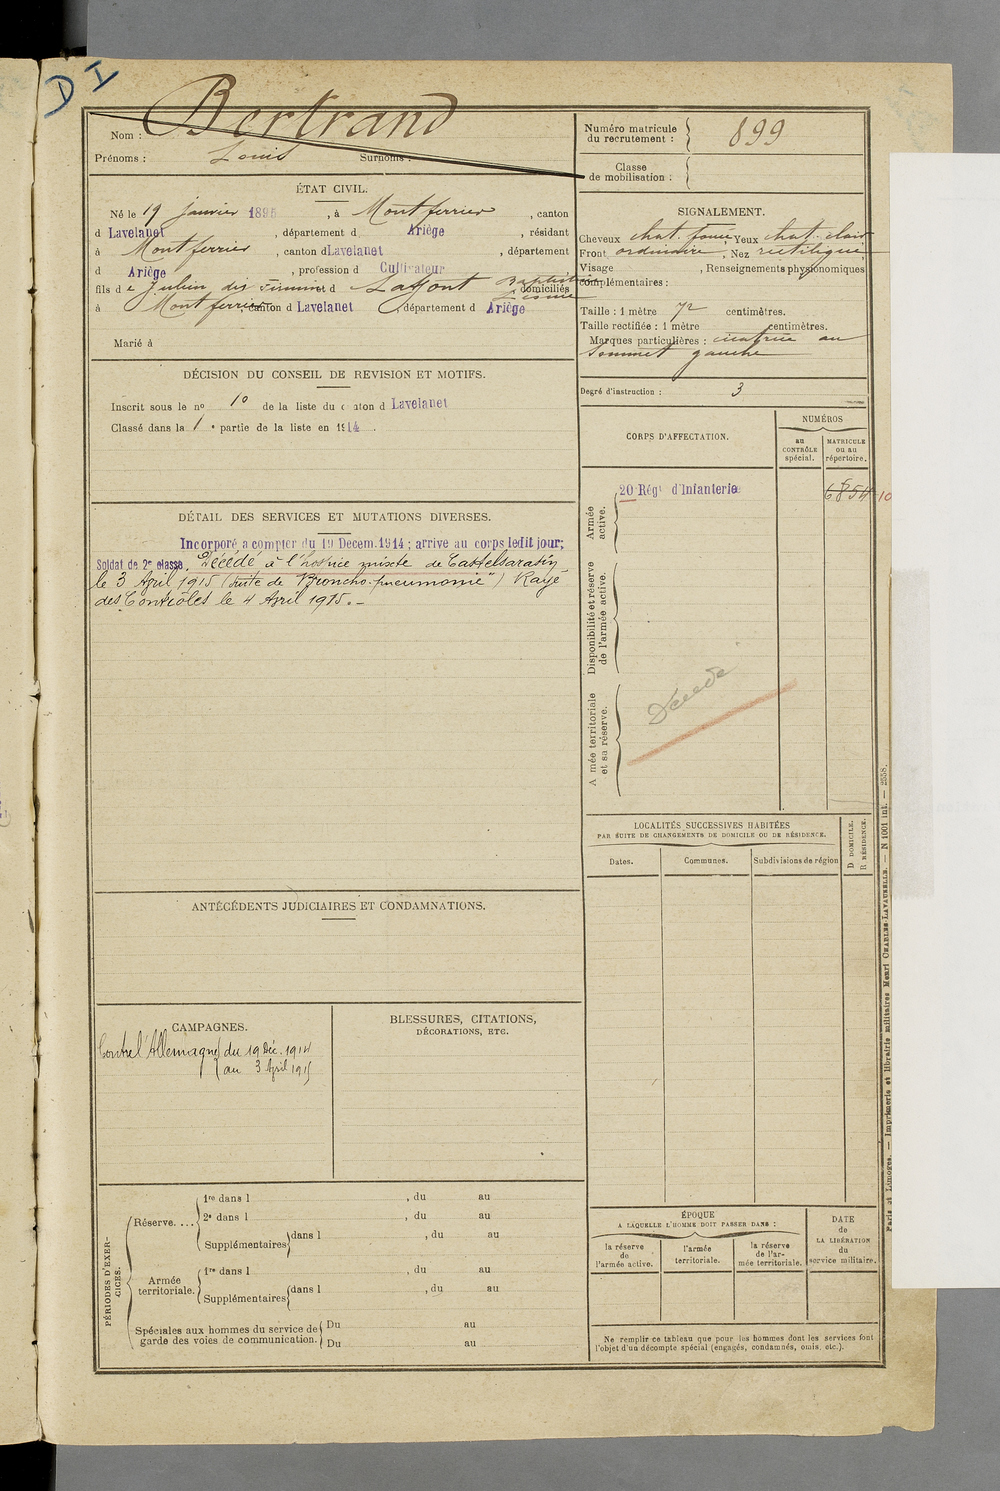 D I
Nom : Bertrand
Prénoms : Louis Surnoms :
Numéro matricule du recrutement : 899
Classe de mobilisation :
ÉTAT CIVIL.
Né le 19 janvier 189 , à Montferrier , canton
d Lavelanet , département d Ariège , résidant
à Montferrier , canton d Lavelanet , département
d Ariège , profession d Cultivateur
fils de Julien, dis et d Laffont Baptistine domiciliés
à Montferrier, canton d Lavelanet , département d Ariège
Marié à
SIGNALEMENT.
Cheveux chat. foncé Yeux chat. clair
Front ordinaire , Nez rectiligne
Visage , Renseignements physionomiques
complémentaires :
Taille : 1 mètre 72 centimètres.
Taille rectifiée : 1 mètre centimètres.
Marques particulières : cicatrice au
sommet gauche
Degré d'instruction : 3
DÉCISION DU CONSEIL DE REVISION ET MOTIFS.
Inscrit sous le nº 10 de la liste du canton d Lavelanet
Classé dans la 1e partie de la liste en 1914 .
CORPS D'AFFECTATION.
NUMÉROS
au CONTRÔLE spécial.
MATRICULE ou au répertoire.
Armée active.
20 Régt d'Infanterie
6854 10
Disponibilité et réserve de l'armée active.
A mée territoriale et sa réserve.
Décédé
DÉTAIL DES SERVICES ET MUTATIONS DIVERSES.
Incorporé a compter du 19 Decem. 1914 ; arrive au corps ledit jour;
Soldat de 2e classe, Décédé à l'hospice mixte de Castelsarasin
le 3 April 1915 (suite de "Broncho-pneumonie") Rayé
des Contrôles le 4 April 1915.-
LOCALITÉS SUCCESSIVES HABITÉES
PAR SUITE DE CHANGEMENTS DE DOMICILE OU DE RÉSIDENCE.
Dates. Communes. Subdivisions de région
D. DOMICILE.
R. RÉSIDENCE.
ANTÉCÉDENTS JUDICIAIRES ET CONDAMNATIONS.
CAMPAGNES.
Contre l'Allemagne du 19 Déc. 1914
au 3 April 1915
BLESSURES, CITATIONS,
DÉCORATIONS, ETC.
PÉRIODES D'EXERCICES.
Réserve....
1re dans l , du au
2e dans l , du au
Supplémentaires dans l , du au
Armée territoriale.
1re dans l , du au
Supplémentaires dans l , du au
Spéciales aux hommes du service de
garde des voies de communication.
Du au
Du au
ÉPOQUE
A LAQUELLE L'HOMME DOIT PASSER DANS :
la réserve de l'armée active.
l'armée territoriale.
la réserve de l'armée territoriale.
DATE de LA LIBÉRATION du service militaire.
Ne remplir ce tableau que pour les hommes dont les services font
l'objet d'un décompte spécial (engagés, condamnés, omis, etc.).
Paris et Limoges. — Imprimerie et librairie militaires Henri CHARLES-LAVAUZELLE. — N 1001 int. — 2558.